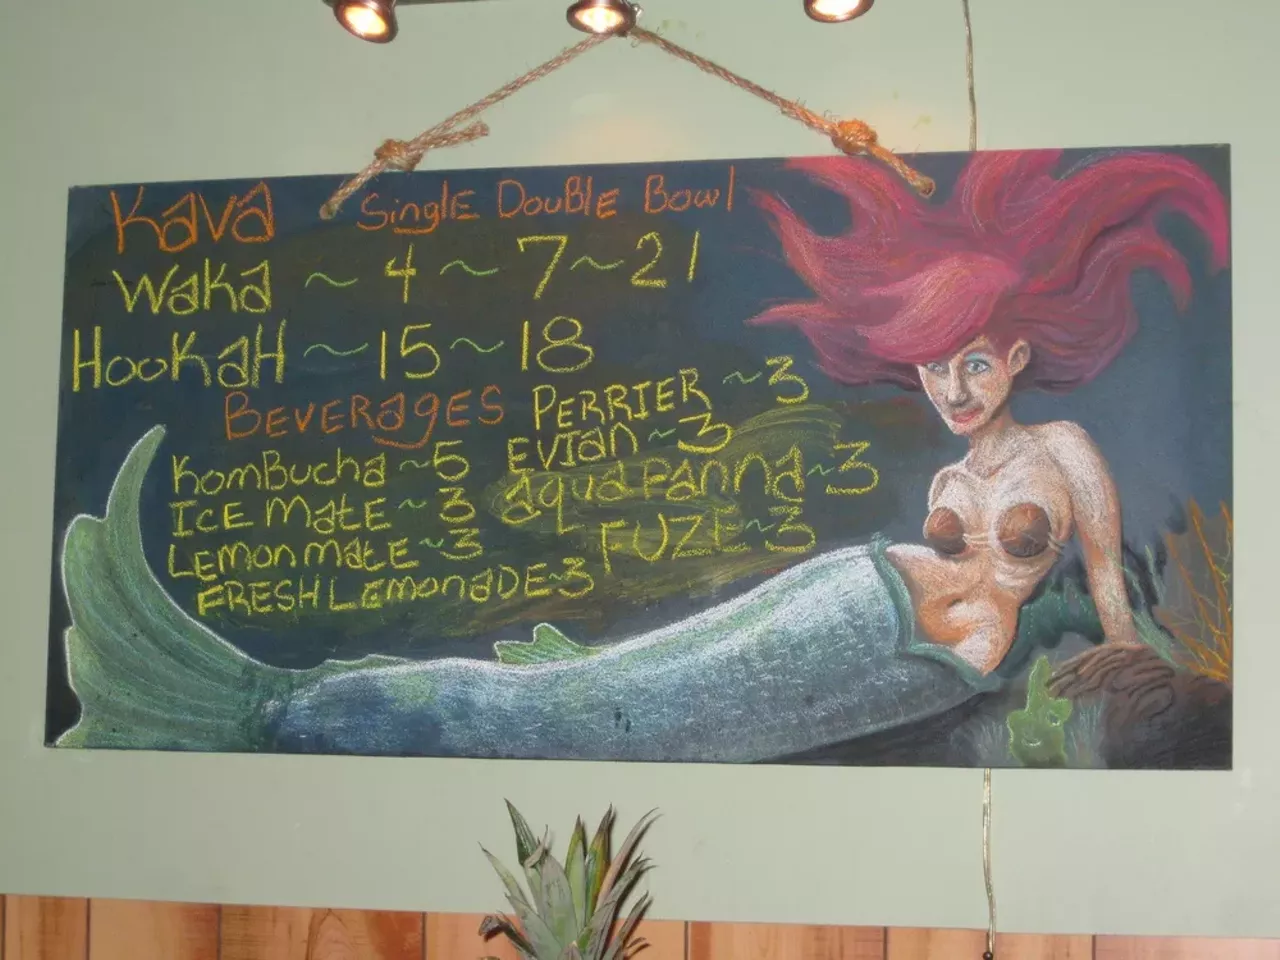 Kava Single Double Bowl
Waka ~ 4 ~ 7 ~ 21
Hookah ~ 15 ~ 18
Beverages
Kombucha ~ 5
Ice Mate ~ 3
Lemon mate ~ 3
Fresh Lemonade ~ 3
Perrier ~ 3
Evian ~ 3
aqua Panna ~ 3
Fuze ~ 3